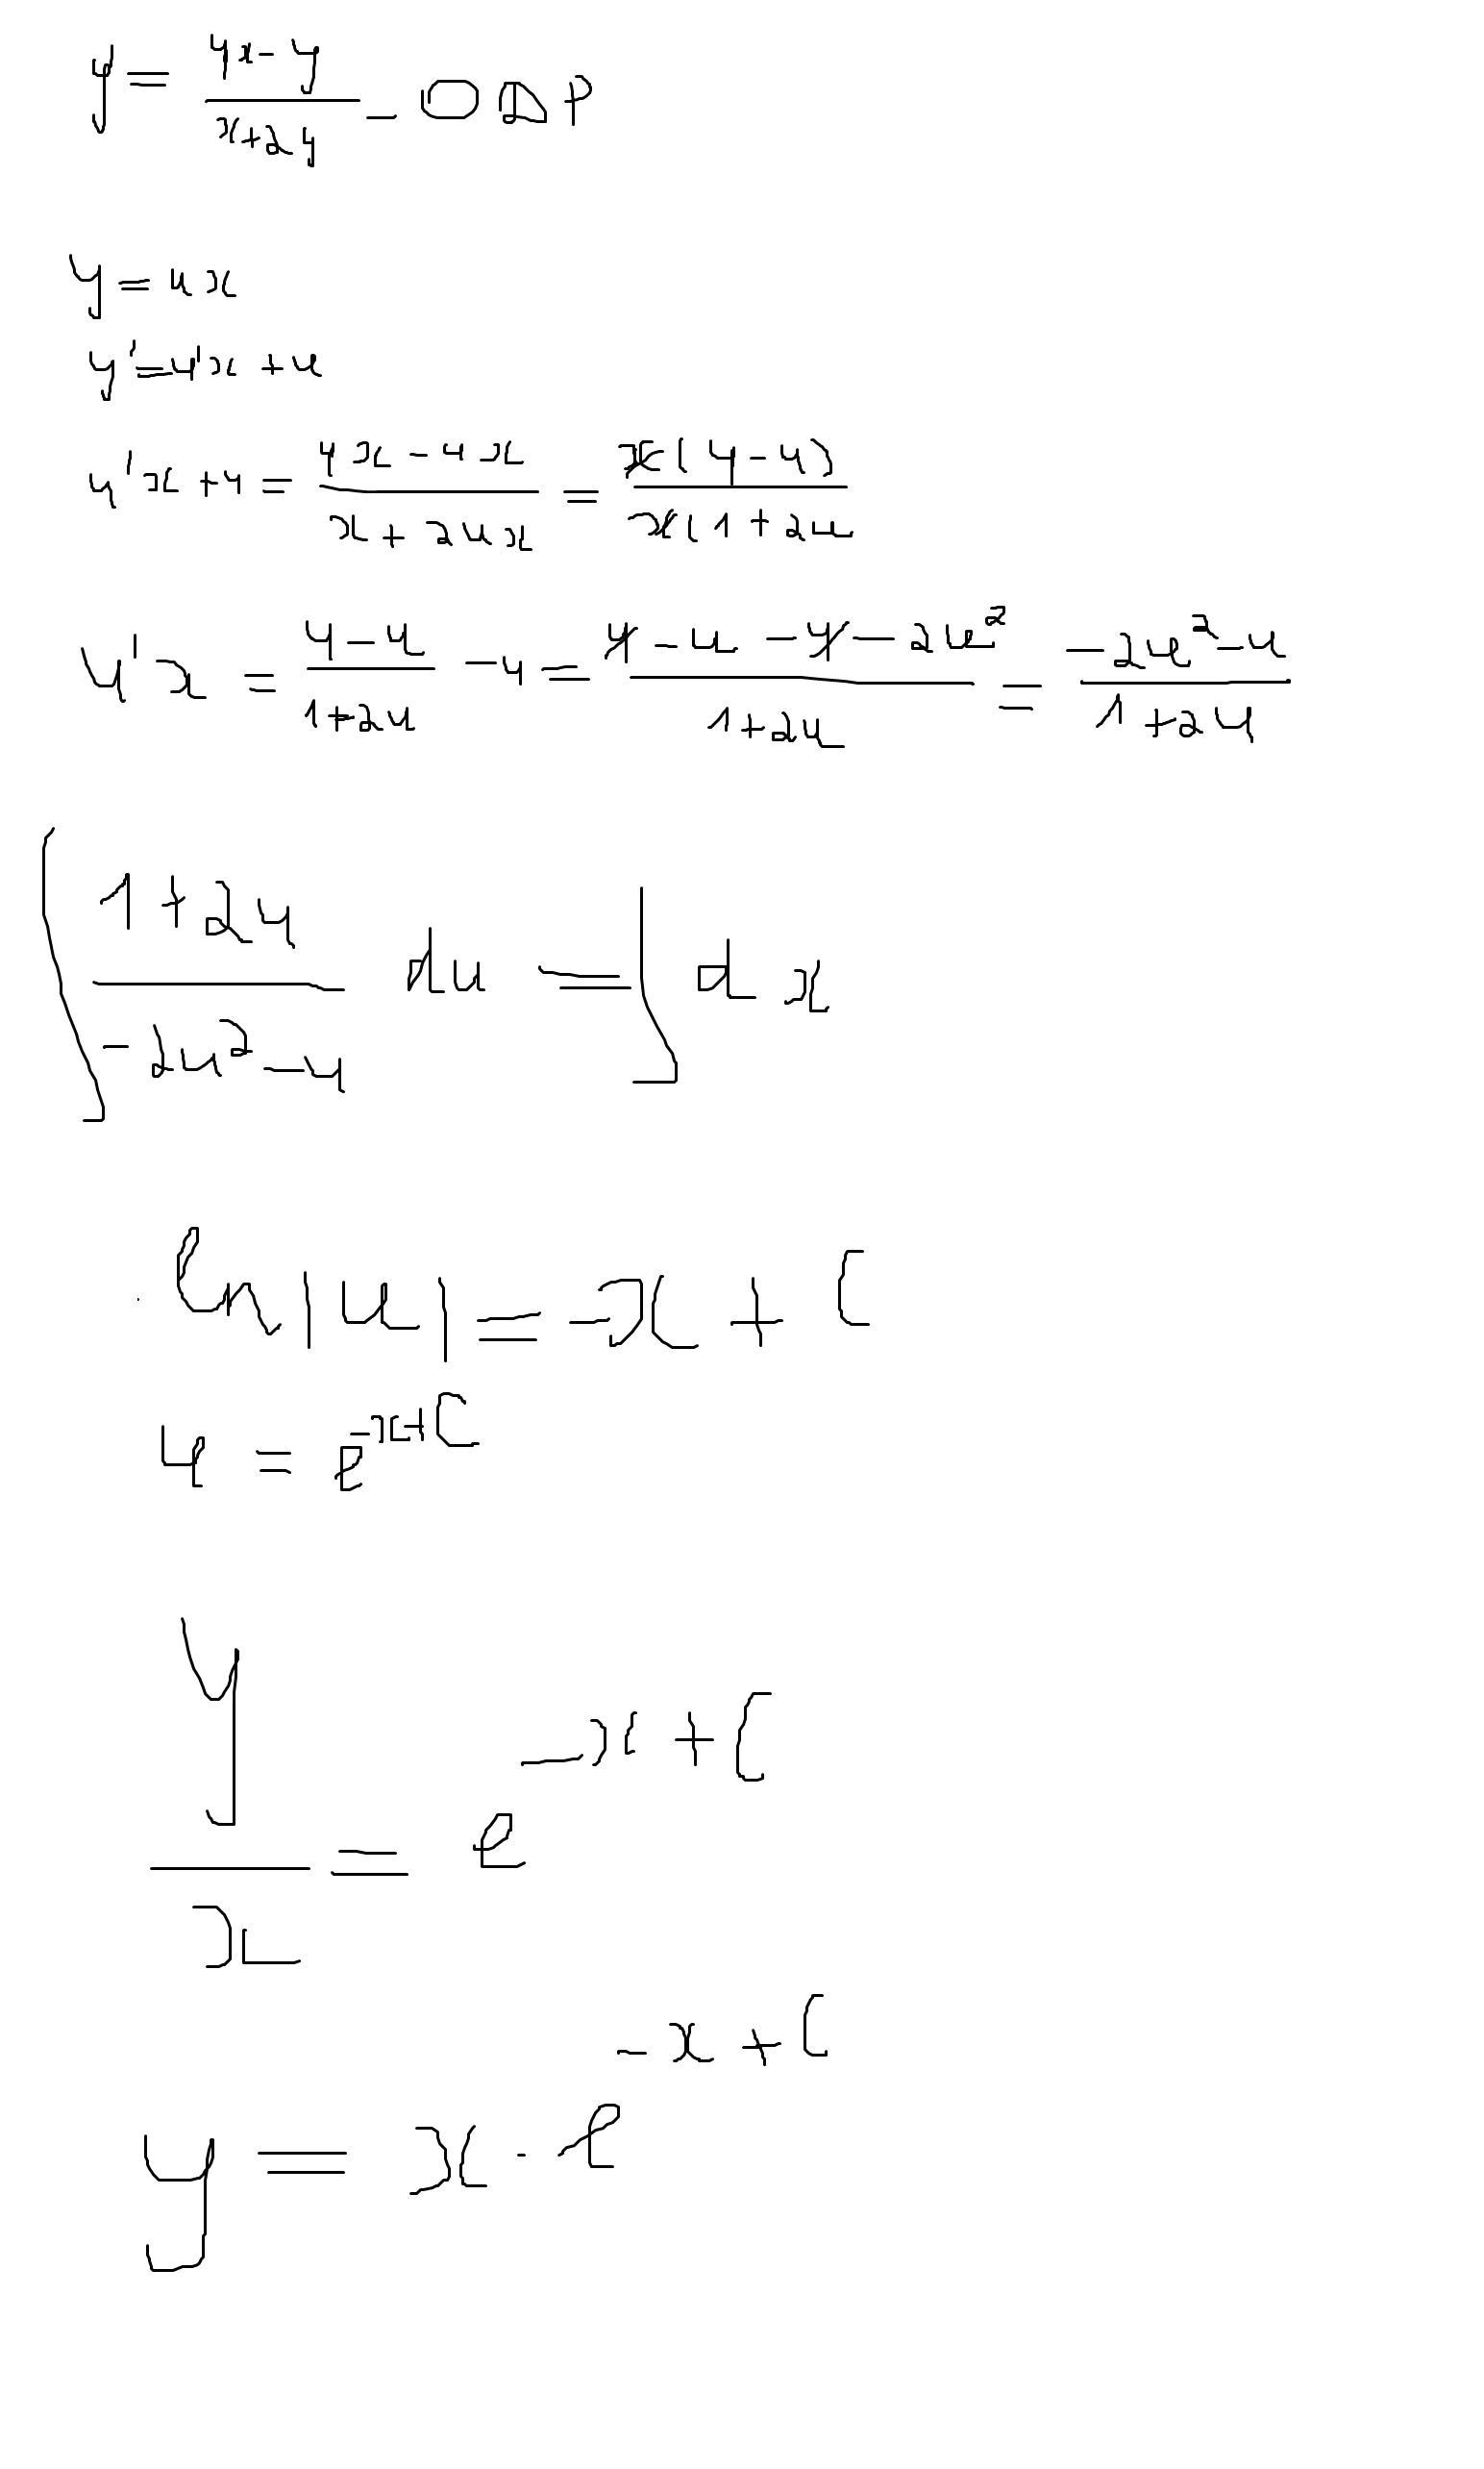 y = \frac{4x - y}{x + 2y} - ODP
y = ux
y' = u'x + u
u'x + u = \frac{4x - ux}{x + 2ux} = \frac{x(4 - u)}{x(1 + 2u}
u'x = \frac{4 - u}{1 + 2u} - u = \frac{4 - u - u - 2u^2}{1 + 2u} = \frac{-2u^2 - u}{1 + 2u}
\int \frac{1 + 2u}{-2u^2 - u} du = \int dx
ln|u| = -x + C
u = e^{-x + C}
\frac{y}{x} = e^{-x + C}
y = x \cdot e^{-x + C}